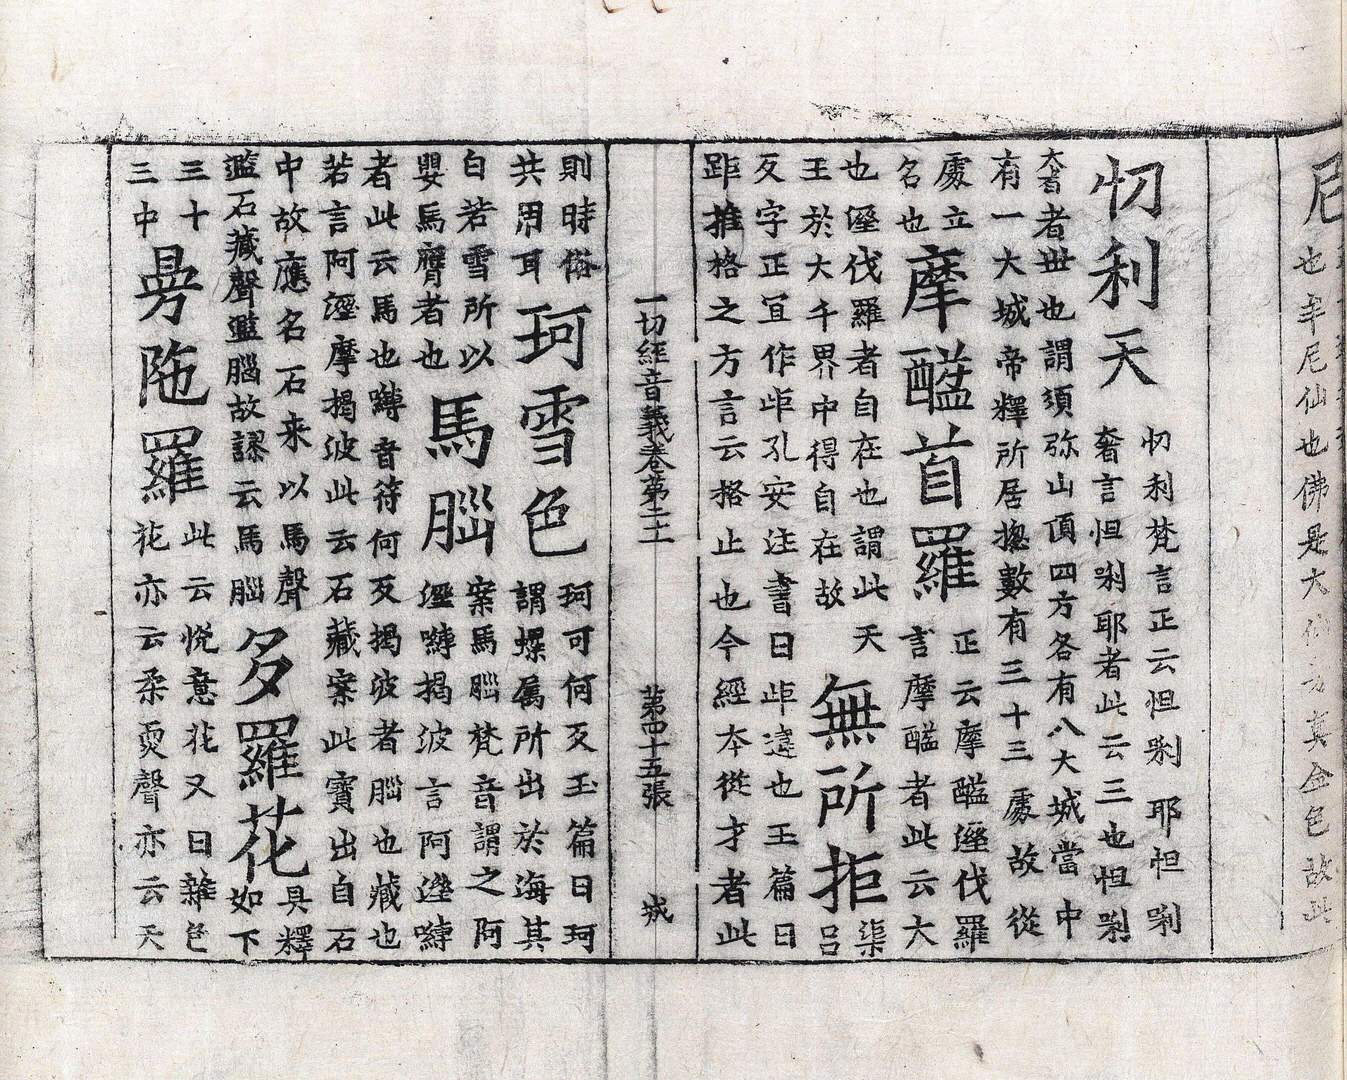 尼
也牟尼仙也佛是大仙
真金色故此
忉利天
忉利梵言正云怛唎耶怛唎
奢言怛唎耶者此云三也怛唎
奢者世也謂須弥山頂四方各有八大城當中
有一大城帝釋所居揔數有三十三處故從
處立
名也
摩醯首羅
正云摩醯溼伐羅
言摩醯者此云大
也溼伐羅者自在也謂此天
王於大千界中得自在故
無所拒
渠
吕
反字正冝作歫孔安注書曰歫違也玉篇曰
距推格之方言云格止也今經本從才者此
一切經音義卷第二十一
第四十五張
城
則時俗
共用耳
珂雪色
珂可何反玉篇曰珂
謂螺属所出於海其
白若雪所以
嬰馬膺者也
馬腦
案馬腦梵音謂之阿
溼嚩揭波言阿溼嚩
者此云馬也嚩音符何反揭波者腦也藏也
若言阿溼摩揭波此云石藏案此寶出自石
中故應名石来以馬聲
濫石藏聲濫腦故謬云馬腦
多羅花
具釋
如下
三十
三中
曼陁羅
此云悅意花又曰雜色
花亦云柔耎聲亦云天